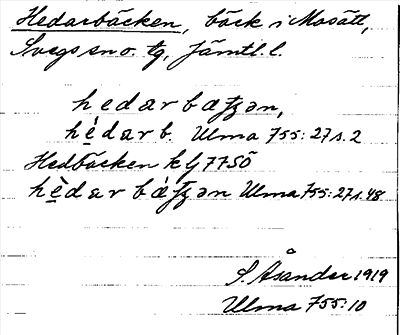 Hedarbäcken, bäck i Mosätt,
Svegs sn o. tg, Jämtl. l.
hedarbæʈʂən,
hèdarb. Ulma 755:27 s. 2
Hedbäcken k bl 77 SÖ
hèdarbæ̀ʈʂən Ulma 755:27 s. 48
S. Åsander 1919
Ulma 755:10